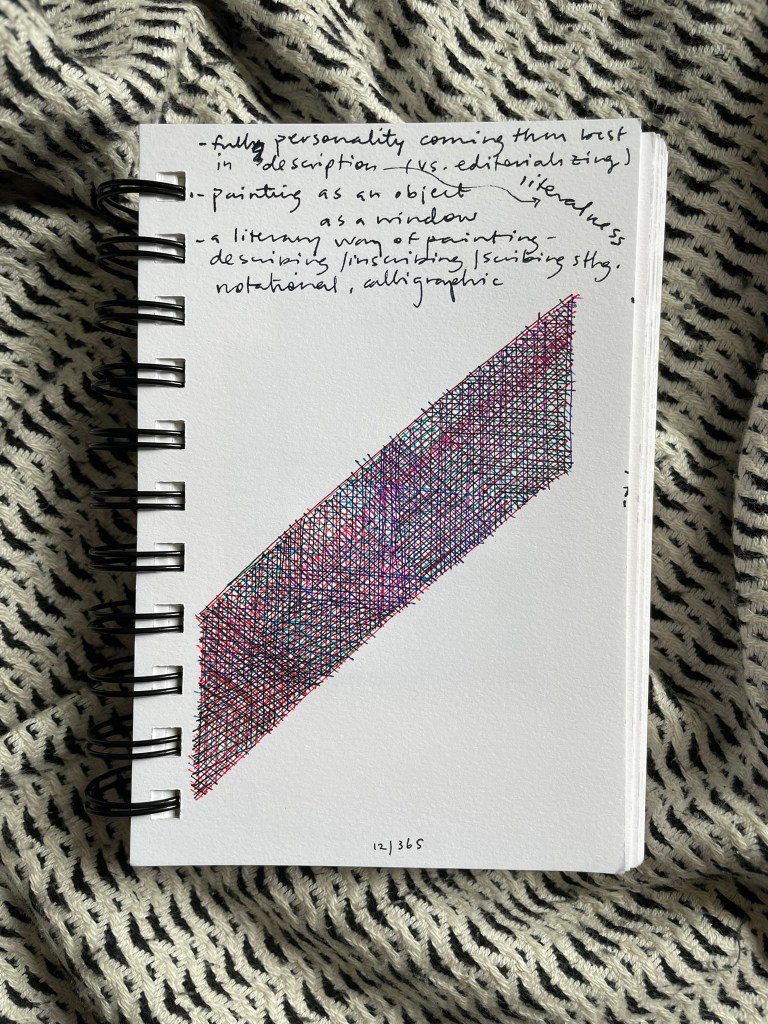 - fully personality coming thru best
in description — (vs. editorializing)
literalness
- painting as an object
as a window
- a literary way of painting -
describing / inscribing / scribing sthg.
notational, calligraphic
12/365